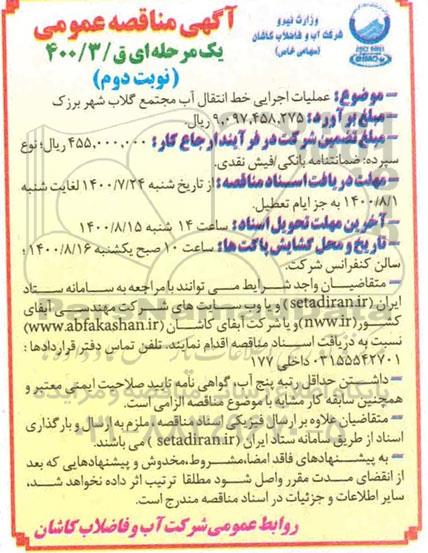 آگهی مناقصه عمومی
یک مرحله ای ق/۴۰۰/۳
(نوبت دوم)
وزارت نیرو
شرکت آب و فاضلاب کاشان
(سهامی خاص)
– موضوع: عملیات اجرایی خط انتقال آب مجتمع گلاب شهر برزک
– مبلغ برآورد: ۹,۰۹۷,۴۵۸,۲۷۵ ریال.
– مبلغ تضمین شرکت در فرآیند ارجاع کار: ۴۵۵,۰۰۰,۰۰۰ ریال؛ نوع
سپرده: ضمانتنامه بانکی/فیش نقدی.
– مهلت دریافت اسناد مناقصه: از تاریخ شنبه ۱۴۰۰/۷/۲۴ لغایت شنبه
۱۴۰۰/۸/۱ به جز ایام تعطیل.
– آخرین مهلت تحویل اسناد: ساعت ۱۴ شنبه ۱۴۰۰/۸/۱۵
– تاریخ و محل گشایش پاکت ها: ساعت ۱۰ صبح یکشنبه ۱۴۰۰/۸/۱۶ ؛
سالن کنفرانس شرکت.
– متقاضیان واجد شرایط می توانند با مراجعه به سامانه ستاد
ایران (setadiran.ir) و یا وب سایت های شرکت مهندسی آبفای
کشور (nww.ir) و یا شرکت آبفای کاشان (www.abfakashan.ir)
نسبت به دریافت اسناد مناقصه اقدام نمایند. تلفن تماس دفتر قراردادها :
۰۳۱۵۵۵۴۲۷۰۱ داخلی ۱۷۷
– داشتن حداقل رتبه پنج آب، گواهی نامه تایید صلاحیت ایمنی معتبر و
همچنین سابقه کار مشابه با موضوع مناقصه الزامی است.
– متقاضیان علاوه بر ارسال فیزیکی اسناد مناقصه، ملزم به ارسال و بارگذاری
اسناد از طریق سامانه ستاد ایران (setadiran.ir) می باشند.
– به پیشنهادهای فاقد امضاء،مشروط،مخدوش و پیشنهادهایی که بعد
از انقضای مدت مقرر واصل شود مطلقا ترتیب اثر داده نخواهد شد،
سایر اطلاعات و جزئیات در اسناد مناقصه مندرج است.
روابط عمومی شرکت آب و فاضلاب کاشان